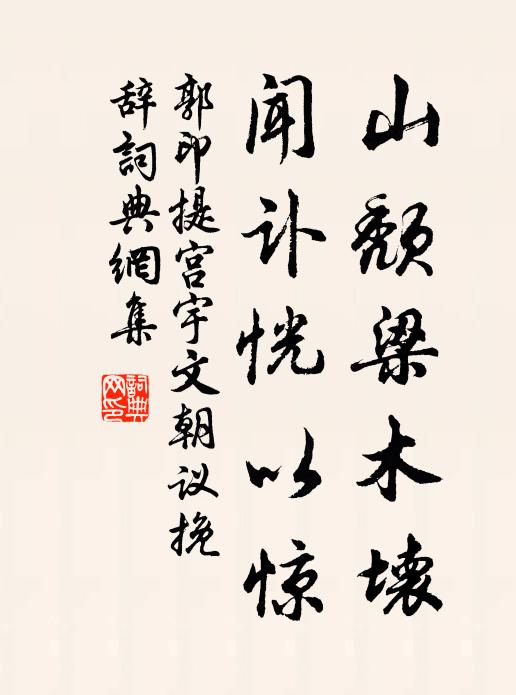 山颓梁木壞
闻讣恍以惊
郭印提宫宇文朝议挽
辞詞典網集
詞典
网印